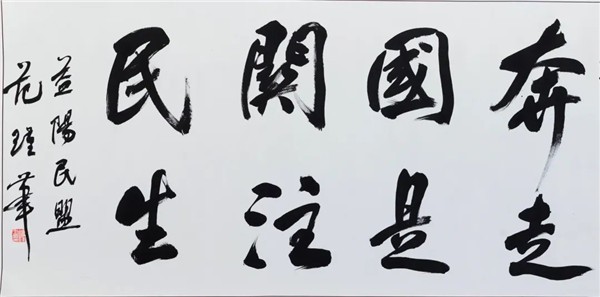 奔走
國是
関注
民生
益陽民盟
范瑾華